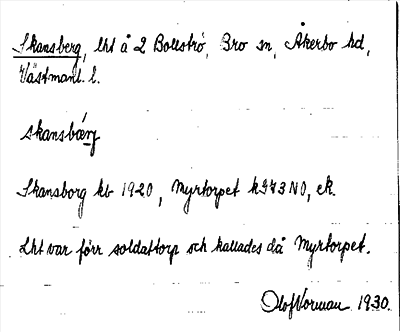 Skansberg, lht å 2 Bollströ, Bro sn, Åkerbo hd,
Västmanl. l.
skansbærj
Skansborg kb 1920, Myrtorpet k 343 NO, ek.
Lht var förr soldattorp och kallades då Myrtorpet.
Olof Norman 1930.